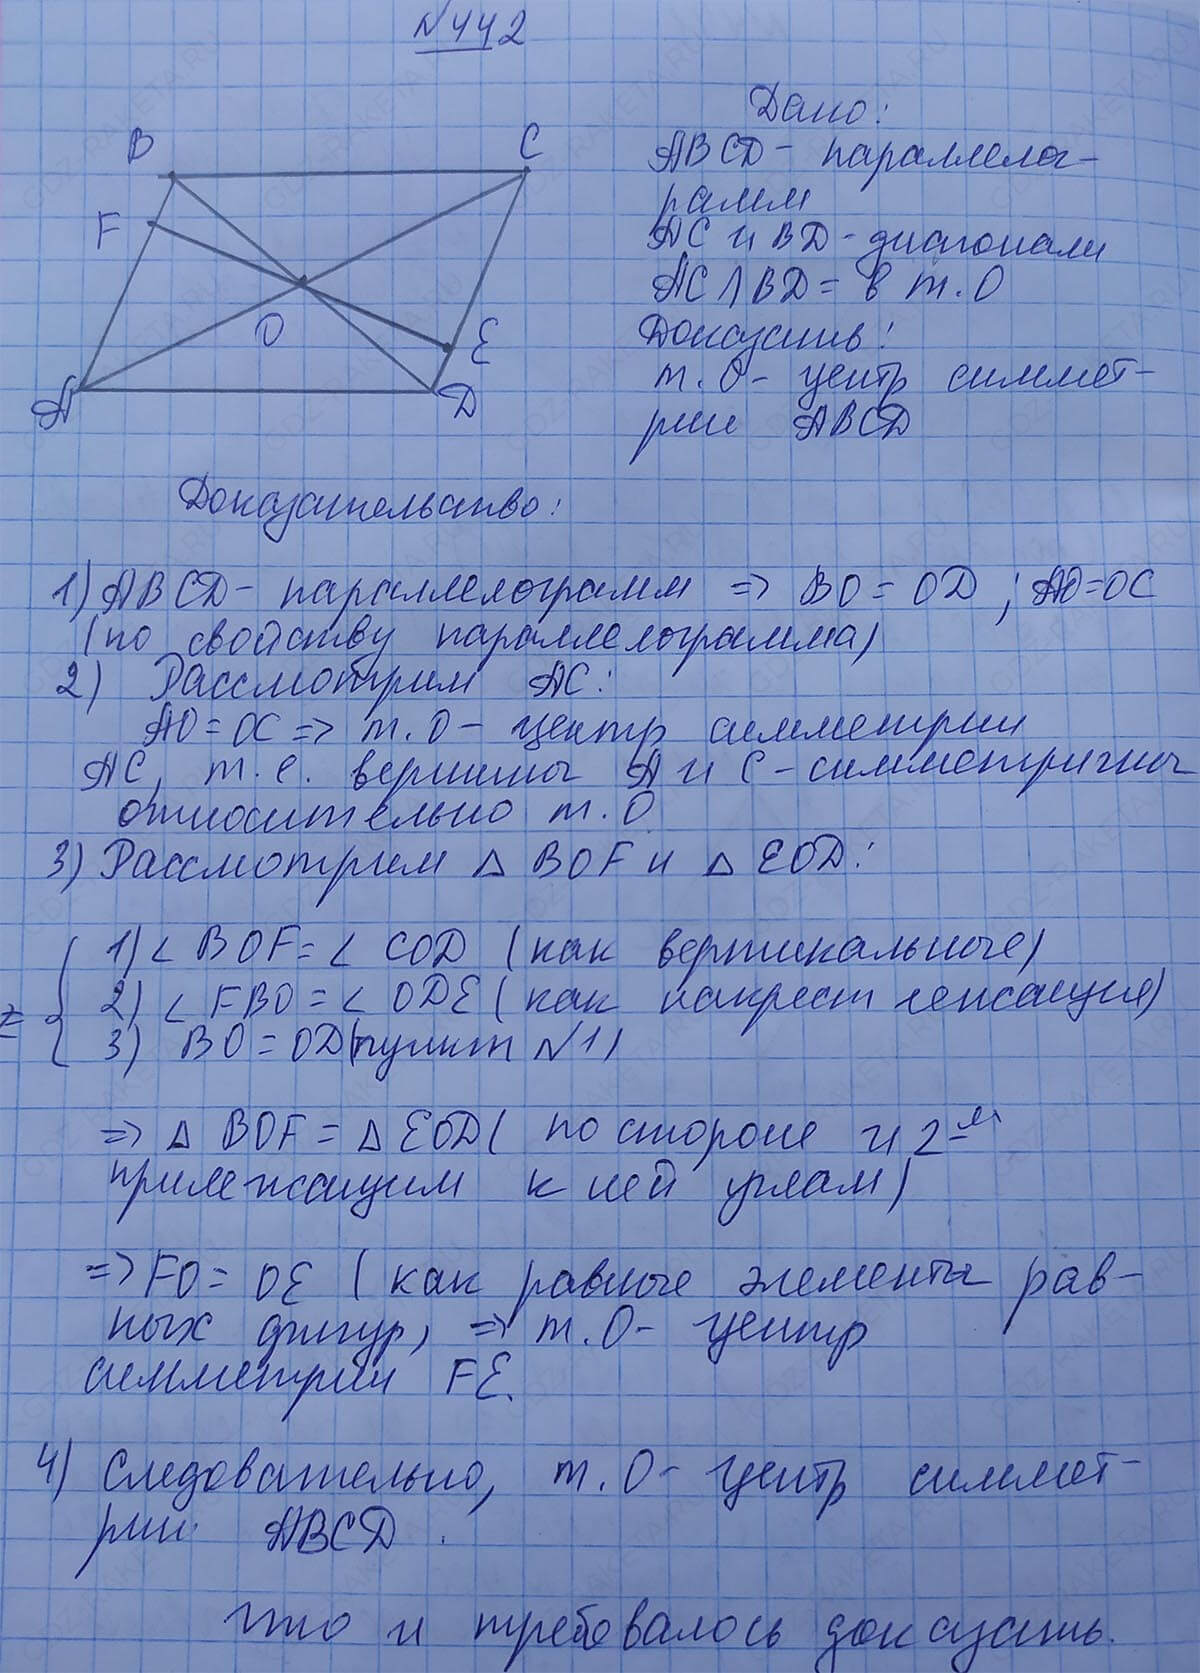 №442
B
C
F
O
E
A
D
Дано:
ABCD- параллелог-
рамм
AC и BD-диагонали
AC∩BD= в т.О
Доказать:
т.О- центр симмет-
рии ABCD
Доказательство:
1) ABCD- параллелограмм => BO=OD; AO=OC
(по свойству параллелограмма)
2) Рассмотрим AC:
AO=OC => т.О- центр симметрии
AC, т.е. вершины A и C-симметричны
относительно т.О
3) Рассмотрим △ BOF и △ EOD:
1) ∠ BOF=∠ COD (как вертикальные)
2) ∠ FBO=∠ ODE (как накрест лежащие)
3) BO=OD(пункт №1)
=> △ BOF=△ EOD( по стороне и 2-м
прилежащим к ней углам)
=> FO= OE (как равные элемента рав-
ных фигур) => т.О- центр
симметрии FE.
4) Следовательно, т.О- центр симмет-
рии ABCD.
что и требовалось доказать.